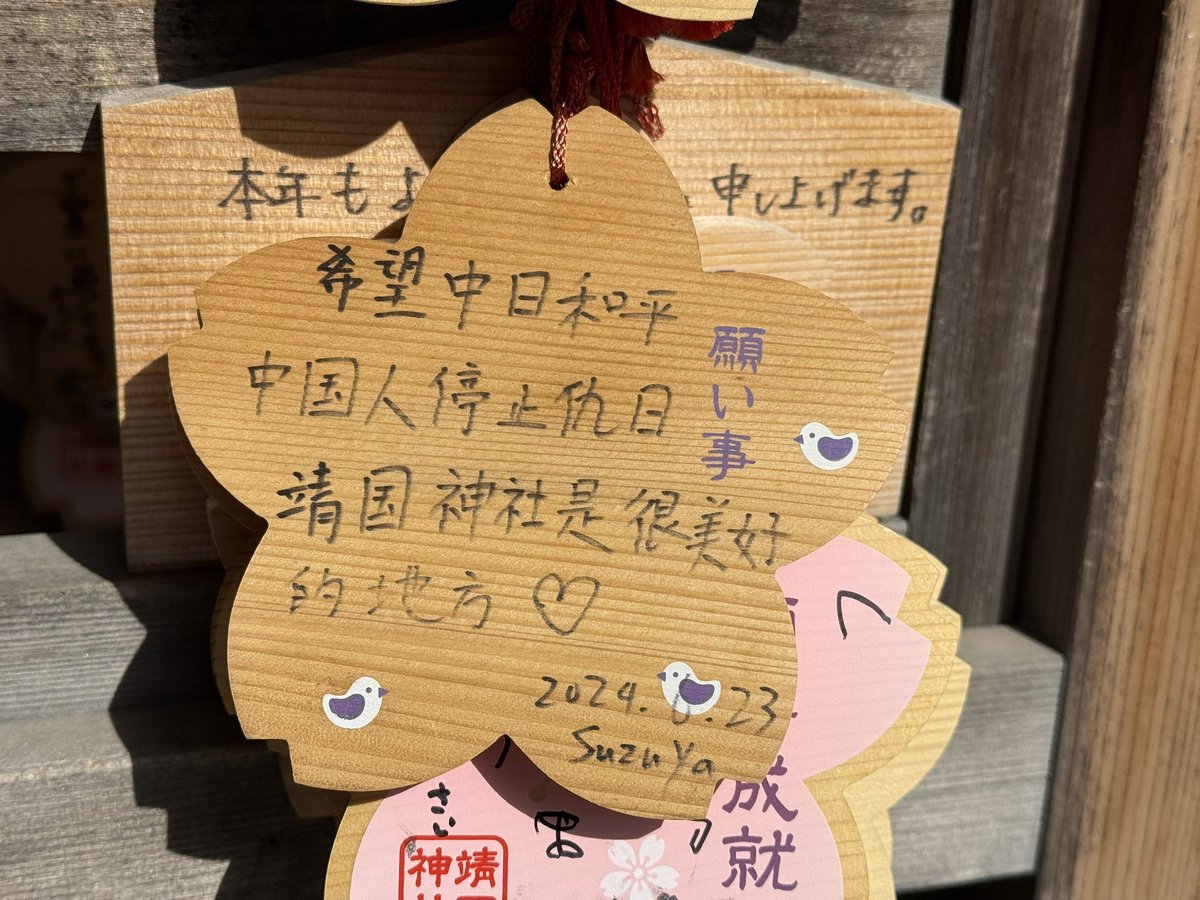 本年もよ
申し上げます。
希望中日和平
中国人停止仇日
靖国神社是很美好
的地方♡
願い事
2024.6.23
Suzu Ya
さい
成就
靖
神